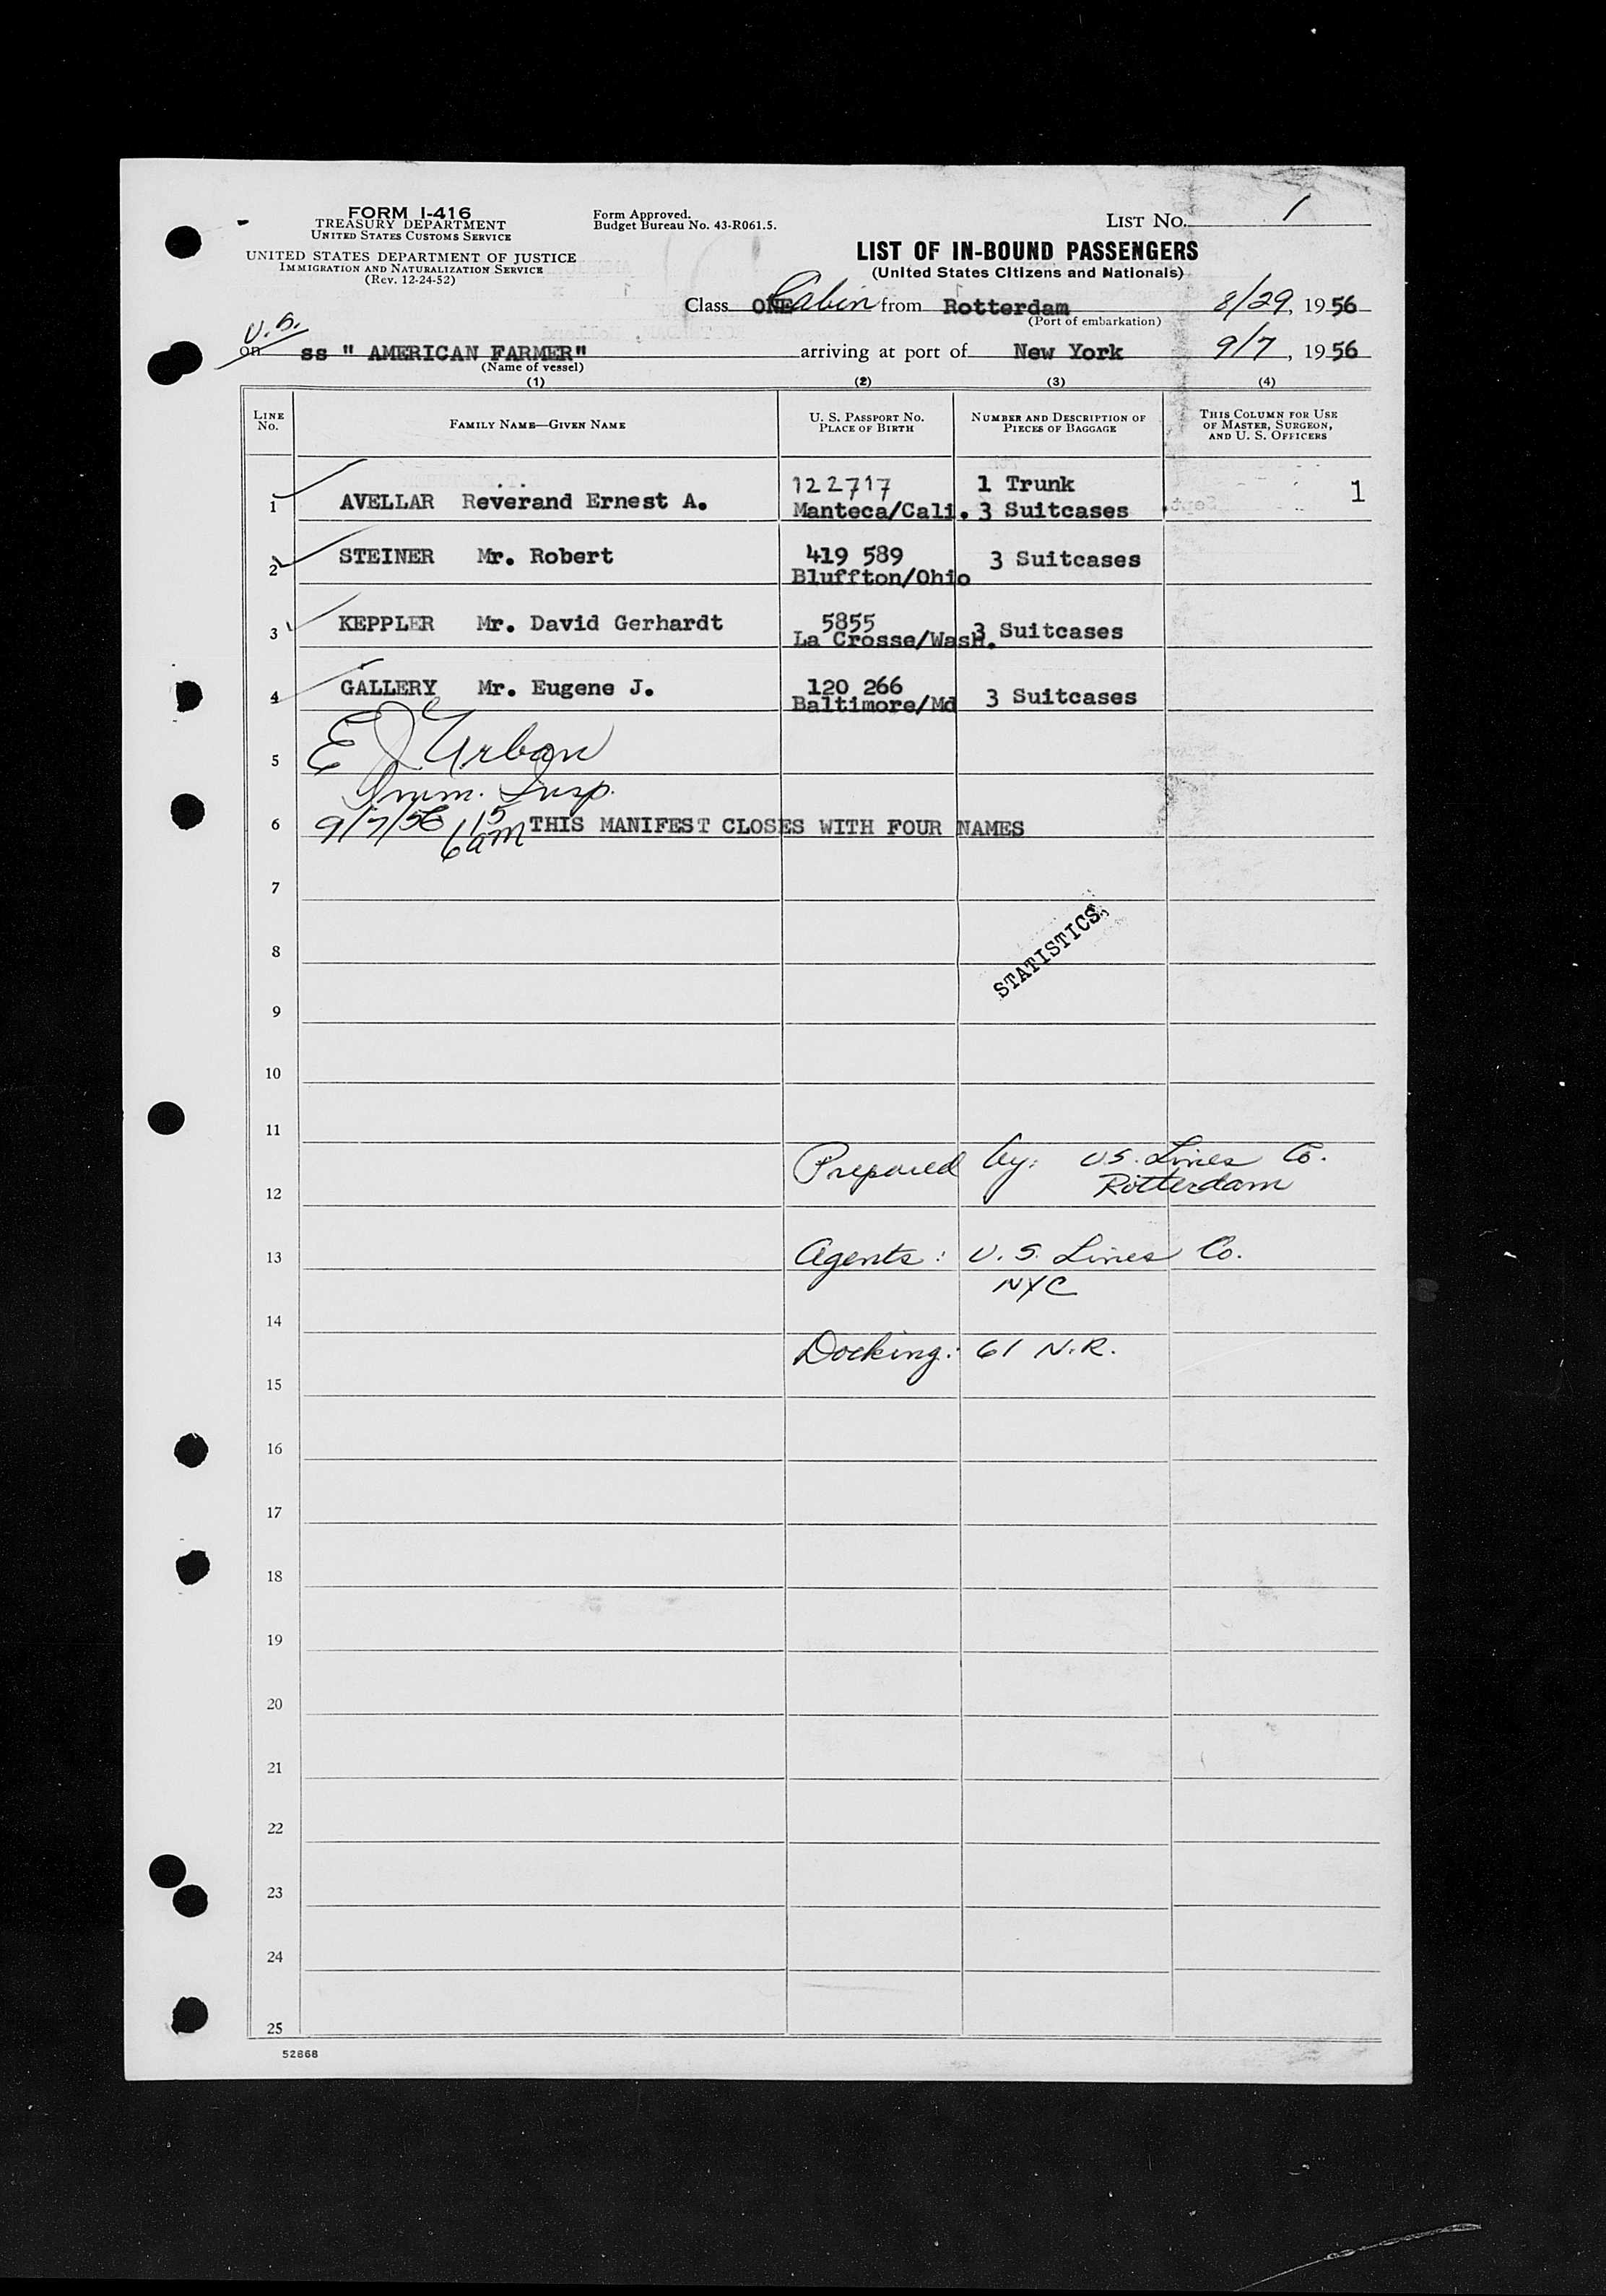 FORM I-416
TREASURY DEPARTMENT
UNITED STATES CUSTOMS SERVICE
UNITED STATES DEPARTMENT OF JUSTICE
IMMIGRATION AND NATURALIZATION SERVICE
(Rev. 12-24-52)
Form Approved.
Budget Bureau No. 43-R061.5.
LIST NO. 1
LIST OF IN-BOUND PASSENGERS
(United States Citizens and Nationals)
Class ONE Cabin from Rotterdam 8/29, 1956
(Port of embarkation)
U.S.
on ss " AMERICAN FARMER" arriving at port of New York 9/7, 1956
(Name of vessel)
(1) (2) (3) (4)
LINE NO. FAMILY NAME—GIVEN NAME U. S. PASSPORT NO. PLACE OF BIRTH NUMBER AND DESCRIPTION OF PIECES OF BAGGAGE THIS COLUMN FOR USE OF MASTER, SURGEON, AND U. S. OFFICERS
122717 1 Trunk
1 AVELLAR Reverand Ernest A. Manteca/Cali. 3 Suitcases 1
2 STEINER Mr. Robert 419 589 3 Suitcases
Bluffton/Ohio
3 KEPPLER Mr. David Gerhardt 5855 3 Suitcases
La Crosse/Wash.
4 GALLERY Mr. Eugene J. 120 266 3 Suitcases
Baltimore/Md
5 E J Urban
Imm. Insp.
6 9/7/56 6 15 am THIS MANIFEST CLOSES WITH FOUR NAMES
7
STATISTICS
8
9
10
11
Prepared by: U.S. Lines Co.
12 Rotterdam
13 Agents: U.S. Lines Co.
NYC
14
Docking: 61 N.R.
15
16
17
18
19
20
21
22
23
24
25
52868